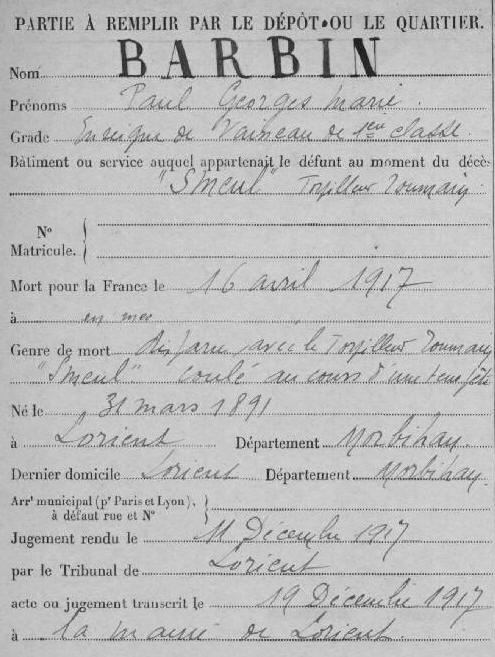 PARTIE À REMPLIR PAR LE DÉPÔT OU LE QUARTIER.
Nom BARBIN
Prénoms Paul Georges Marie.
Grade Enseigne de Vaisseau de 1ere classe.
Bâtiment ou service auquel appartenait le défunt au moment du décès
"Smeul" Torpilleur Roumain.
N°
Matricule.
Mort pour la France le 16 avril 1917
à en mer
Genre de mort disparu avec le Torpilleur Roumain
"Smeul" coulé au cours d'une tempête
Né le 31 mars 1891
à Lorient Département Morbihan
Dernier domicile Lorient Département Morbihan.
Arrt municipal (pr Paris et Lyon),
à défaut rue et N°
Jugement rendu le 11 Décembre 1917
par le Tribunal de Lorient
acte ou jugement transcrit le 19 Décembre 1917
à la mairie de Lorient.